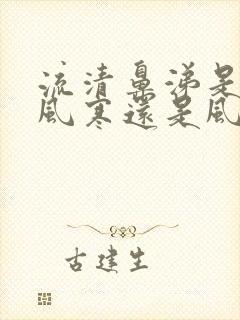 流清鼻涕是
風寒還是風
古建生